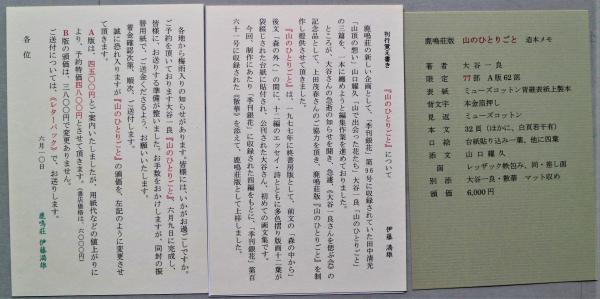 各地から梅雨入りの知らせがあります。皆様には、いかがお過ごしですか。
ご予約を頂いております大谷一良『山のひとりごと』、六月九日に完成し、
皆様に、お送りする準備が整いました。お手数をおかけしますが、同封の振
替用紙で、ご送金くださるよう、お願いいたします。
着金確認次第、順次、ご送付します。
誠に恐れ入りますが『山のひとりごと』の頒価を、左記のように変更させ
て頂きます。
A版は、四五〇〇円とご案内いたしましたが、用紙代などの値上がりに
より、予約特価四八〇〇円とさせて頂きます(書店価格は、六〇〇〇円)
B版の頒価は、三八〇〇円で変更ありません。
ご送付については、《レターパック》で、お送りします。
六月一〇日
鹿鳴荘 伊藤満雄
各位
刊行覚え書き
『山のひとりごと』について
伊藤満雄
鹿鳴荘の新しい企画として、「季刊銀花」第96号に収録されていた田中清光
「山頂の憩い」山口耀久、「山で出会った花たち」大谷一良「山のひとりごと」
の三篇を、一本に纏めようと編集作業を進めておりました。
ところが、大谷さんの急逝の知らせを聞き、急遽、《大谷一良さんを偲ぶ会》の
記念品として、上田茂春さんのご協力を頂き、鹿鳴荘版『山のひとりごと』を制
作し提供させて頂きました。
『山のひとりごと』は、一九七七年に柊書房版として、前文の「森の中から」
後文「森の外へ」の間に、十二編のエッセイ・詩とともに多色摺り版画十二葉が
袋綴じされた台紙に貼付され、公刊された大谷さん、初めての画文集です。
今回、制作にあたり「季刊銀花」に収録された四編をもとに、「季刊銀花」第百
六十一号に収録された「散華」を添えて、鹿鳴荘版として上梓しました。
鹿鳴荘版 山のひとりごと 造本メモ
著者 大谷一良
限定 77部 A版62部
表紙 ミューズコットン背継表紙上製本
背文字 本金箔押し
見返 ミューズコットン
本文 32頁(ほかに、白頁若干有)
口絵 台紙貼り込み一葉、他に四葉
添文 山口耀久
函 レッザック映包み、同・差し函
別添 大谷一良・散華 マット収め
頒価 6,000円